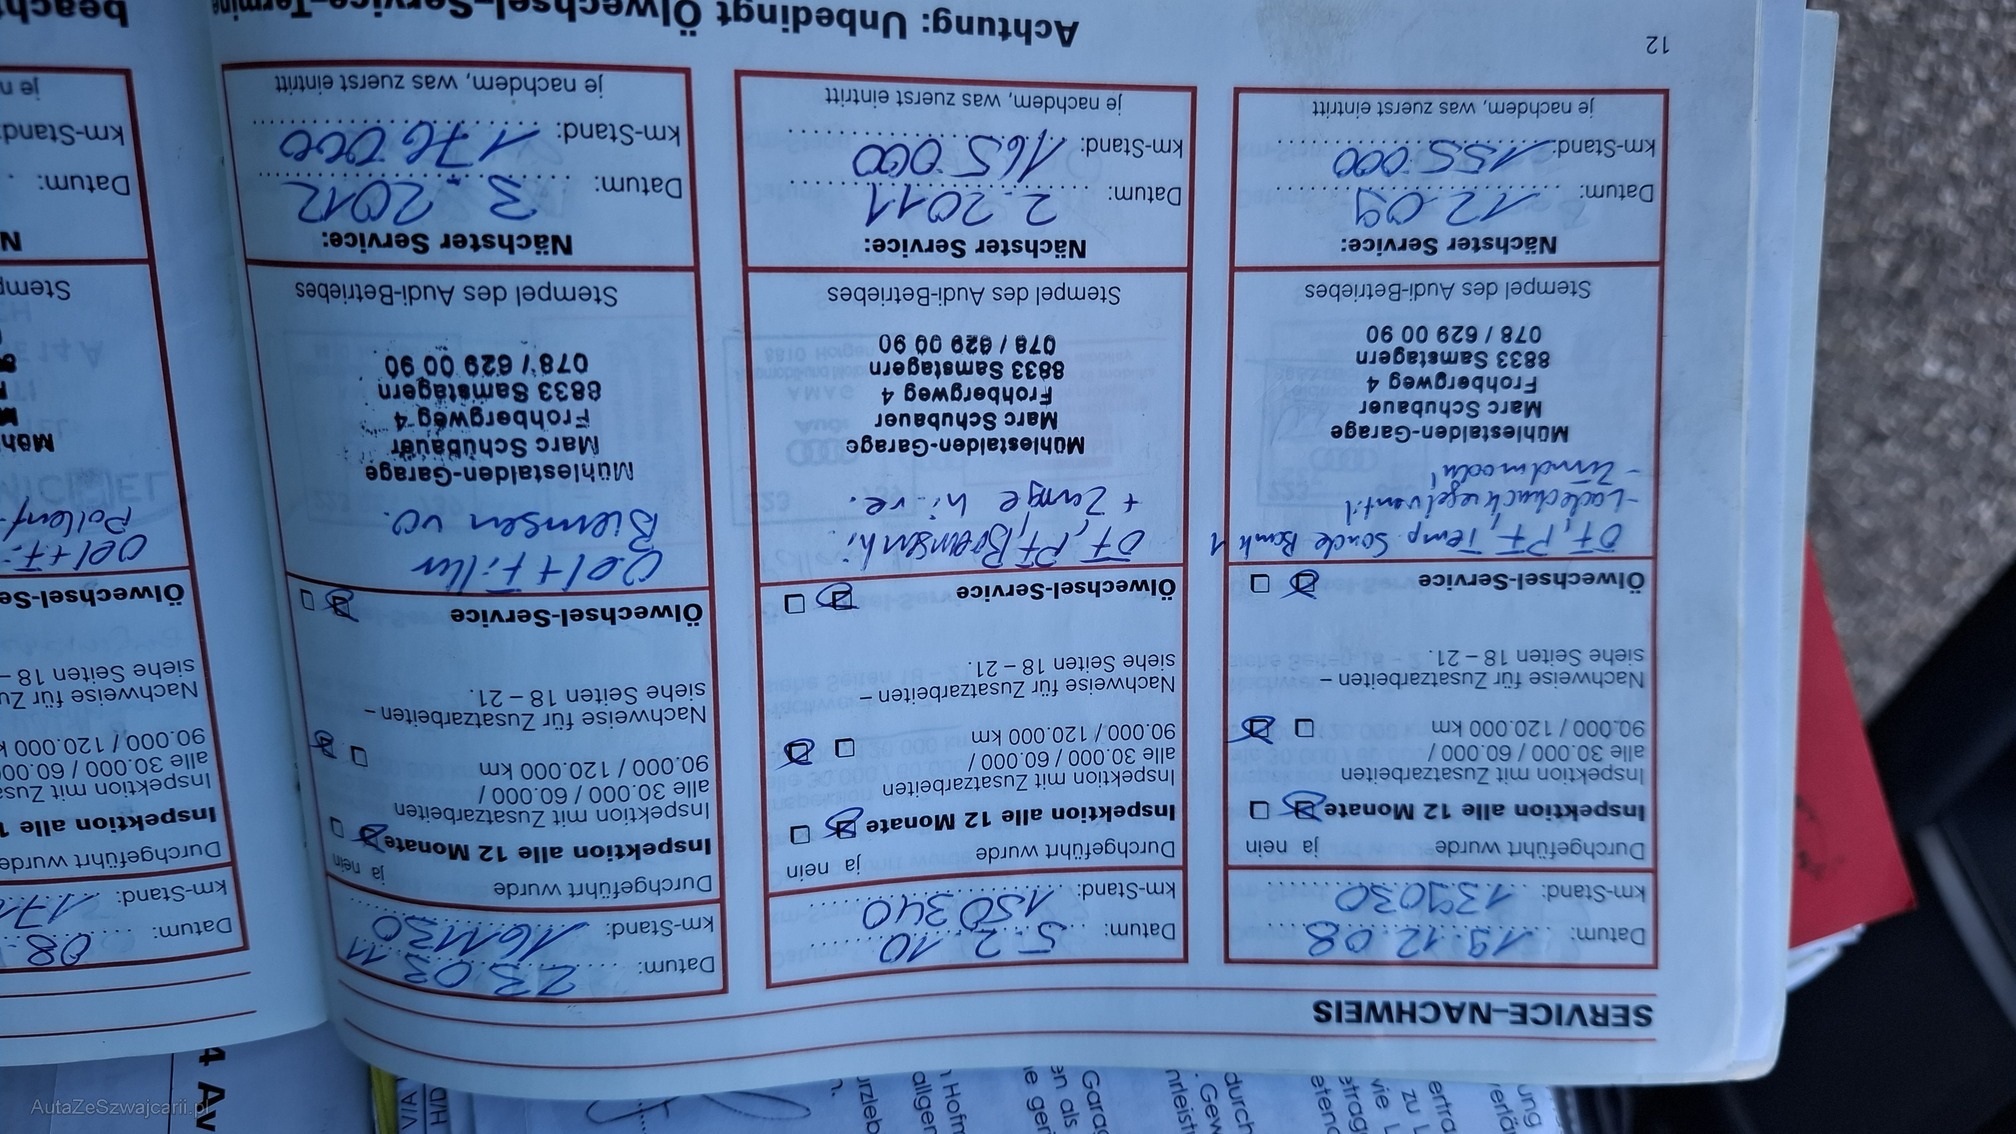 SERVICE–NACHWEIS
Datum: 19.12.08
km-Stand: 139030
Durchgeführt wurde ja nein
Inspektion alle 12 Monate
Inspektion mit Zusatzarbeiten
alle 30.000 / 60.000 /
90.000 / 120.000 km
Nachweise für Zusatzarbeiten –
siehe Seiten 18 – 21.
Ölwechsel-Service
ÖF, PF, Temp. Sonde Bank 1
- Ladedruckregelventil
- Zündmodul
Mühlestalden-Garage
Marc Schubauer
Frohbergweg 4
8833 Samstagern
078 / 629 00 90
Stempel des Audi-Betriebes
Nächster Service:
Datum: 12.09
km-Stand: 155.000
je nachdem, was zuerst eintritt
12
Datum: 5.2.10
km-Stand: 150340
Durchgeführt wurde ja nein
Inspektion alle 12 Monate
Inspektion mit Zusatzarbeiten
alle 30.000 / 60.000 /
90.000 / 120.000 km
Nachweise für Zusatzarbeiten –
siehe Seiten 18 – 21.
Ölwechsel-Service
ÖF, PF, Bremsen hi.
+ Zange hi. ve.
Mühlestalden-Garage
Marc Schubauer
Frohbergweg 4
8833 Samstagern
078 / 629 00 90
Stempel des Audi-Betriebes
Nächster Service:
Datum: 2.2011
km-Stand: 165.000
je nachdem, was zuerst eintritt
Datum: 23.03.11
km-Stand: 161130
Durchgeführt wurde ja nein
Inspektion alle 12 Monate
Inspektion mit Zusatzarbeiten
alle 30.000 / 60.000 /
90.000 / 120.000 km
Nachweise für Zusatzarbeiten –
siehe Seiten 18 – 21.
Ölwechsel-Service
Oel + Filter
Bremsen vo.
Mühlestalden-Garage
Marc Schubauer
Frohbergweg 4
8833 Samstagern
078 / 629 00 90
Stempel des Audi-Betriebes
Nächster Service:
Datum: 3. 2012
km-Stand: 176000
je nachdem, was zuerst eintritt
Achtung: Unbedingt Ölwechsel-Service-Termine
beacht
Datum: 08.
km-Stand: 17
Durchgeführt wurde
Inspektion alle 1
Inspektion mit Zusa
alle 30.000 / 60.000
90.000 / 120.000 k
Nachweise für Zu
siehe Seiten 18 –
Ölwechsel-Se
Oel + Fi
Pollenf
Müh
Stemp
N
Datum:
km-Stand:
je n
4 Av
AutaZeSzwajcarii.pl